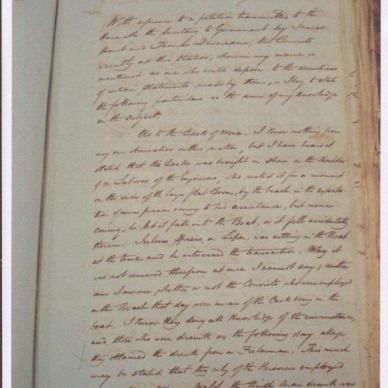 With reference to a petition transmitted to the
Honorable the Secretary to Government by James
Hunt and Thomas two Convicts
at this Station, wherein my name is
mentioned as one who could depose to the correctness
of certain statements made by them, I beg to state
the following particulars as the sum of my knowledge
on the subject.
As to the Cask of wine. I know nothing from
my own observation in this matter, but I have heard it
stated that the Cask was brought on shore on the shoulder
of a Labourer of the Engineers, who rested it for a moment
on the side of the large flat Boat, by the beach in the expecta-
tion of some person coming to his assistance, but none
coming, he let it fall into the Boat, or it fell accidentally
therein. a Leper, was sitting in the Boat
at the time, and he witnessed the transaction. Why it
was not removed therefrom at once I cannot say; neither
am I aware whether or not the Convicts who were employed
on the Beach that day were aware of the Cask being in the
boat. I know they deny all knowledge of the circumstance,
and those who were drunk on the following day allege
they obtained the drink from a Fisherman. This much
may be stated that the only of the Prisoners employed
drunk was